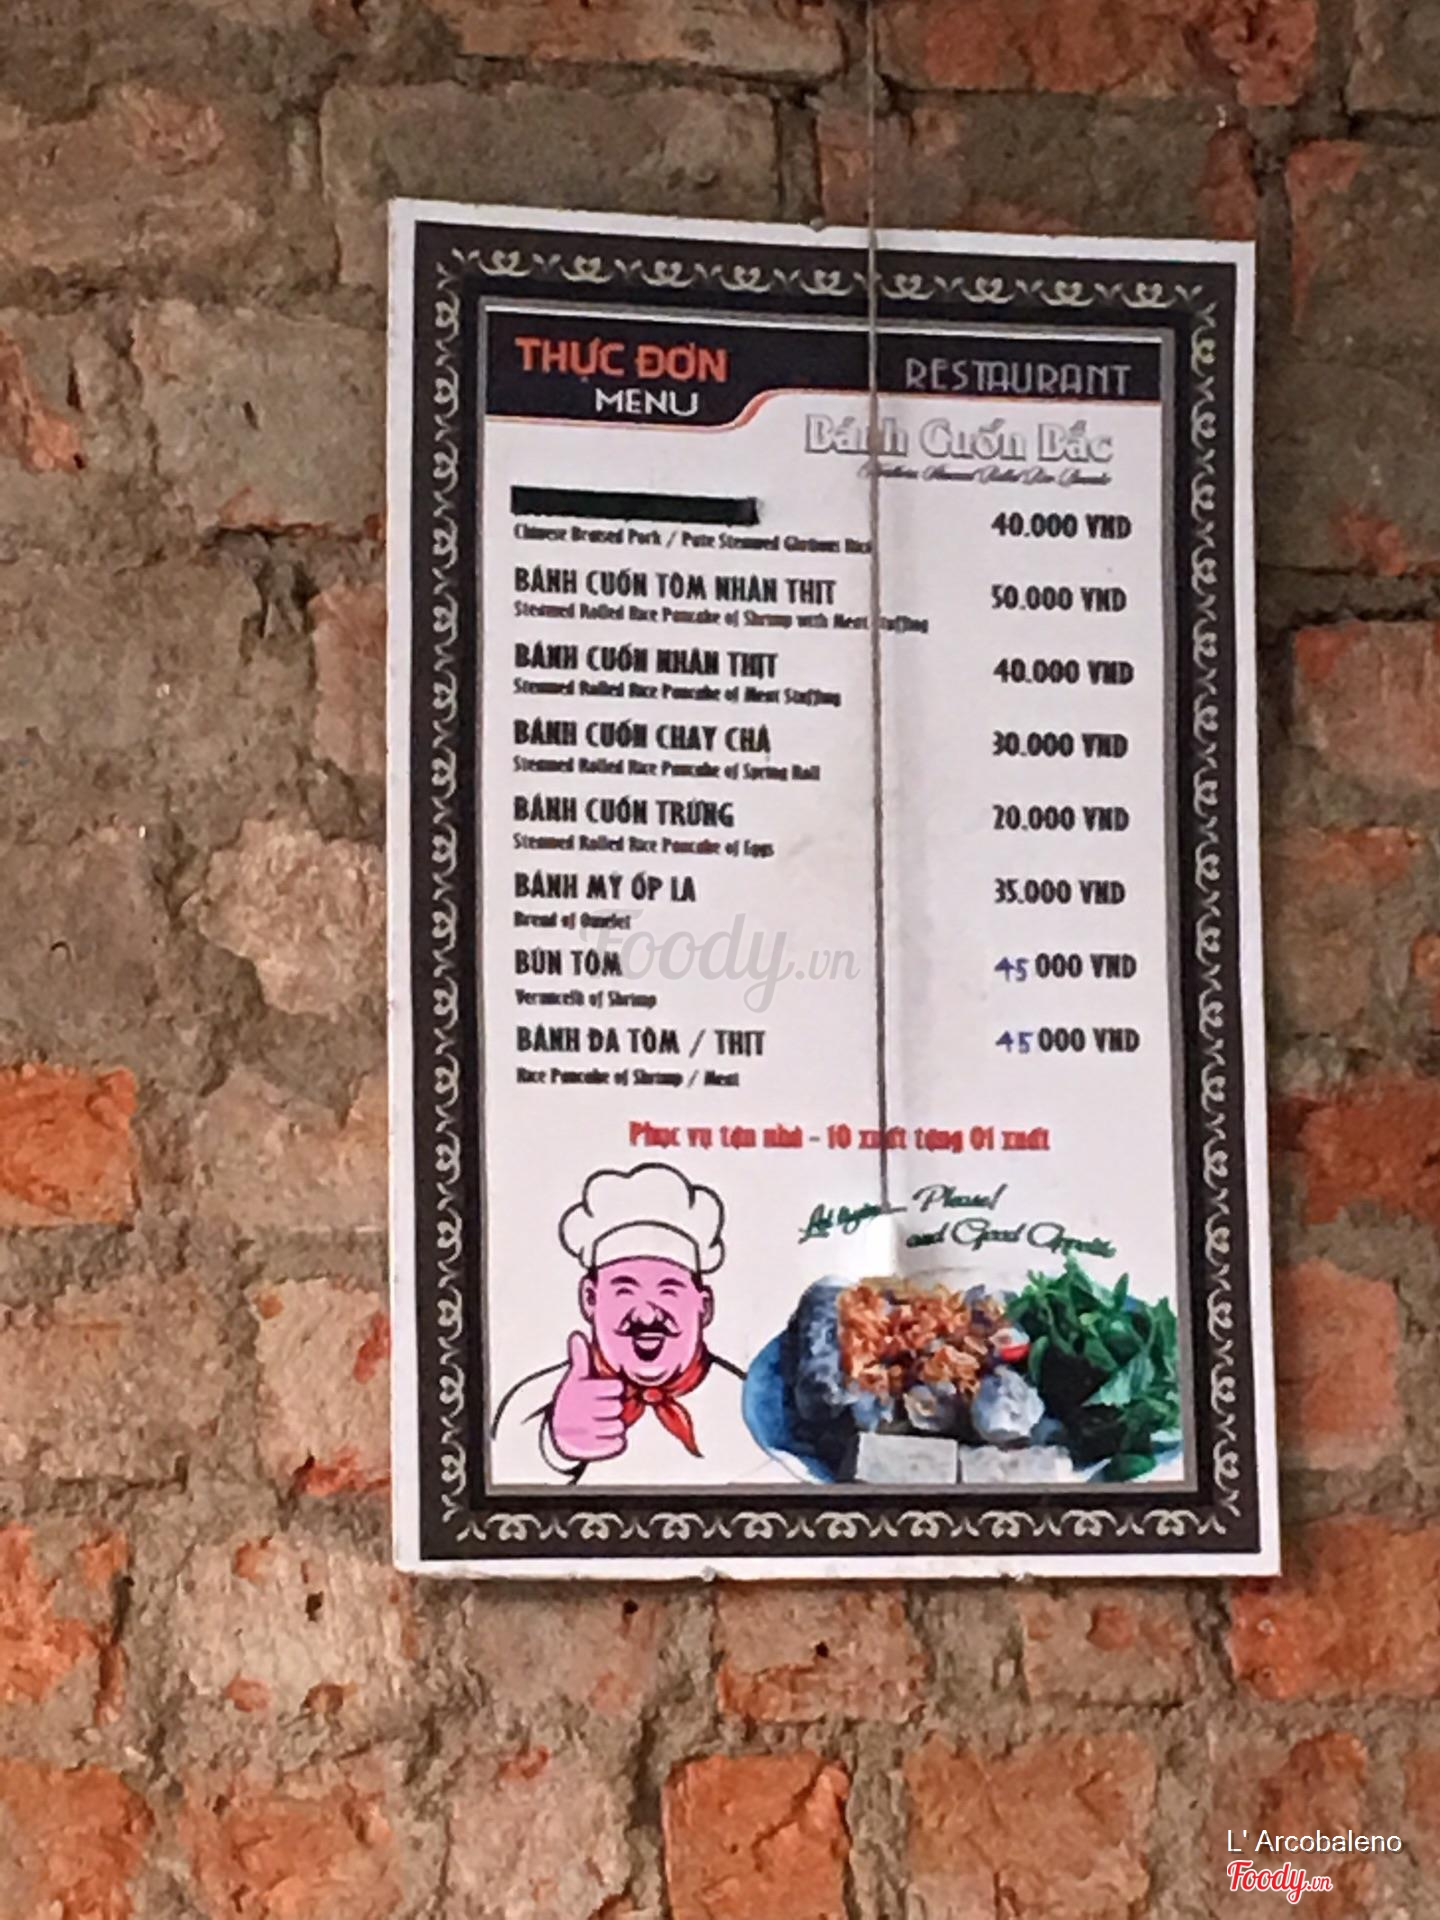 THỰC ĐƠN
MENU
RESTAURANT
Bánh Cuốn Bắc
Chinese Braised Pork / Pate Steamed Glutinous Rice
40.000 VND
BÁNH CUỐN TÔM NHÂN THỊT
50.000 VND
Steamed Rolled Rice Pancake of Shrimp with Meat Stuffing
BÁNH CUỐN NHÂN THỊT
40.000 VND
Steamed Rolled Rice Pancake of Meat Stuffing
BÁNH CUỐN CHAY CHẢ
30.000 VND
Steamed Rolled Rice Pancake of Spring Roll
BÁNH CUỐN TRỨNG
20.000 VND
Steamed Rolled Rice Pancake of Eggs
BÁNH MỲ ỐP LA
35.000 VND
Bread of Omelet
BÚN TÔM
45 000 VND
Vermicelli of Shrimp
BÁNH ĐA TÔM / THỊT
45 000 VND
Rice Pancake of Shrimp / Meat
Phục vụ tận nhà - 10 xuất tặng 01 xuất
Please!
and Good Appetite
Foody.vn
L' Arcobaleno
Foody.vn